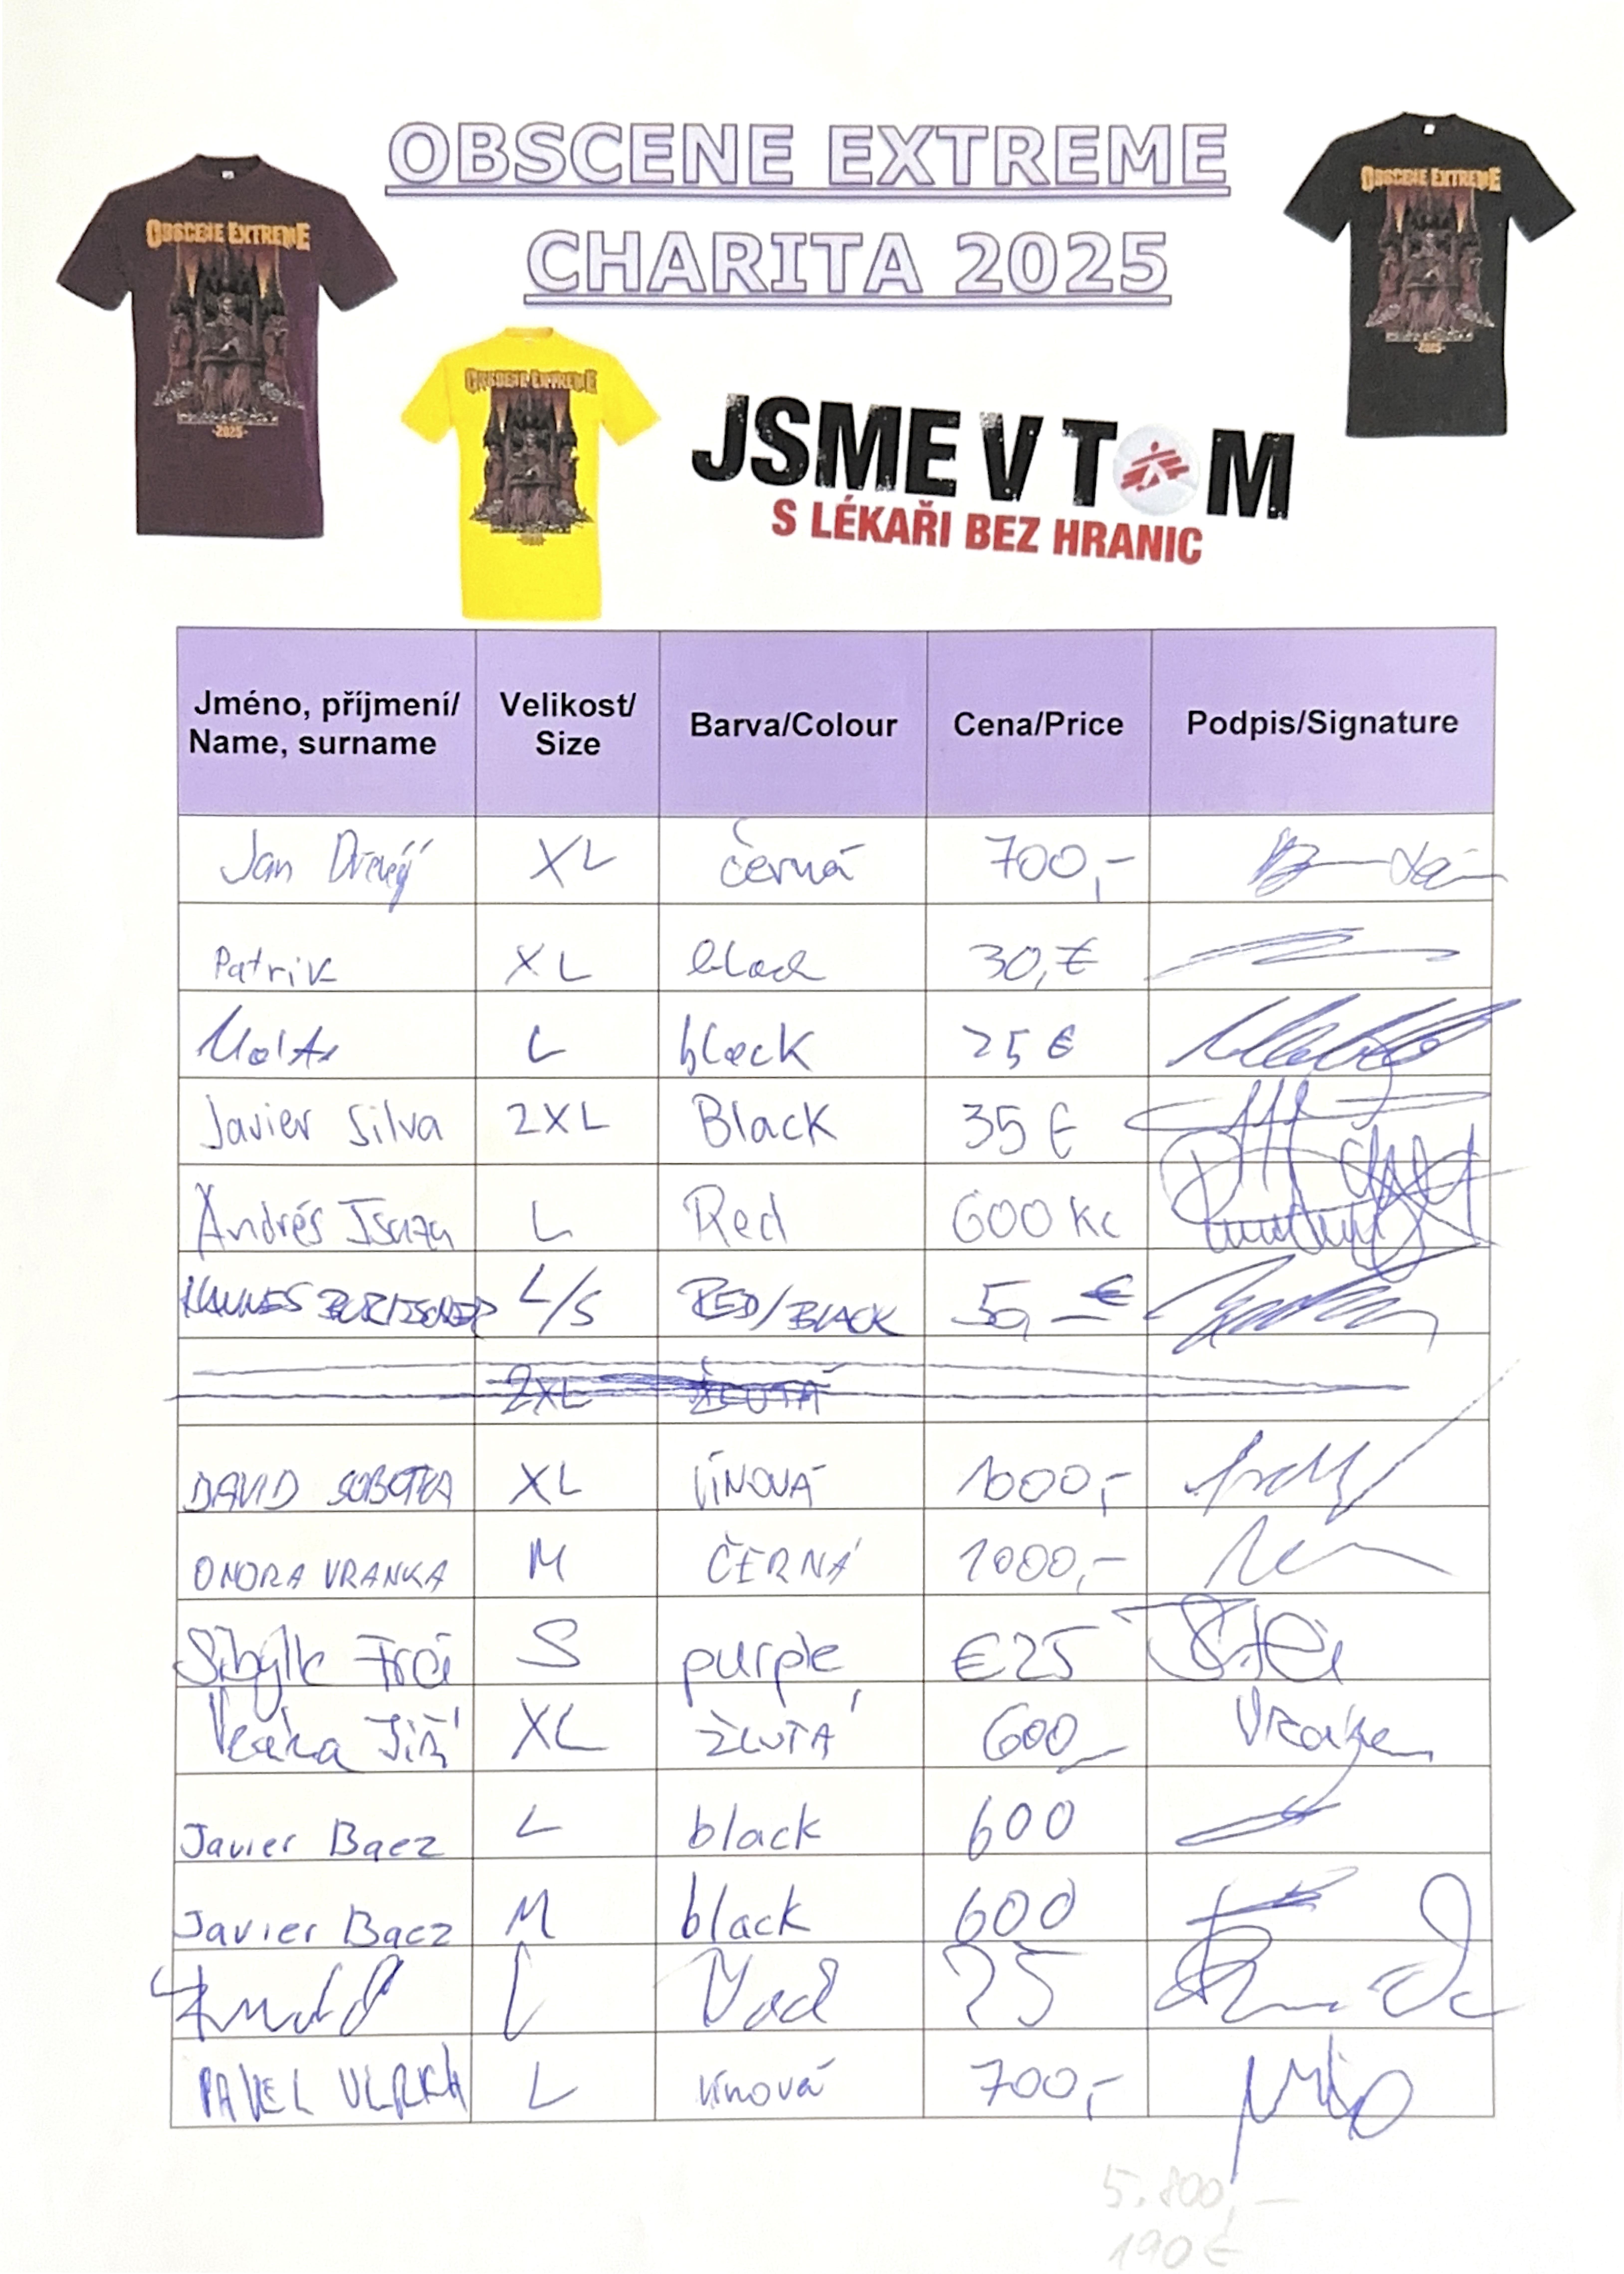 OBSCENE EXTREME
CHARITA 2025
OBSCENE EXTREME
-2025-
OBSCENE EXTREME
OBSCENE EXTREME
-2025-
JSME V TOM
S LÉKAŘI BEZ HRANIC
Jméno, příjmení/ Name, surname Velikost/ Size Barva/Colour Cena/Price Podpis/Signature
Jan XL černá 700,-
Patrik XL black 30,€
L black 25 €
Javier Silva 2XL Black 35 €
Andrés Isaza L Red 600 Kc
HANNES L/S RED/BLACK 50,- €
2XL ŽLUTÁ
DAVID SOBOTKA XL VÍNOVÁ 1000,-
ONDRA VRANKA M ČERNÁ 1000,-
S purple €25
Jiří XL ŽLUTÁ 600,-
Javier Baez L black 600
Javier Baez M black 600
L 25
PAVEL ULRICH L vínová 700,-
5.800,-
190 €